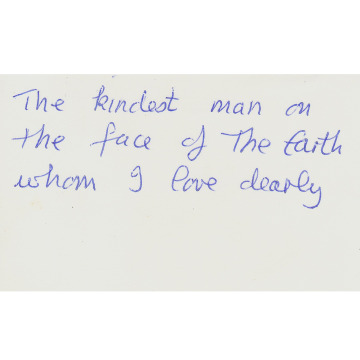 The kindest man on
the face of The Earth
whom I love dearly